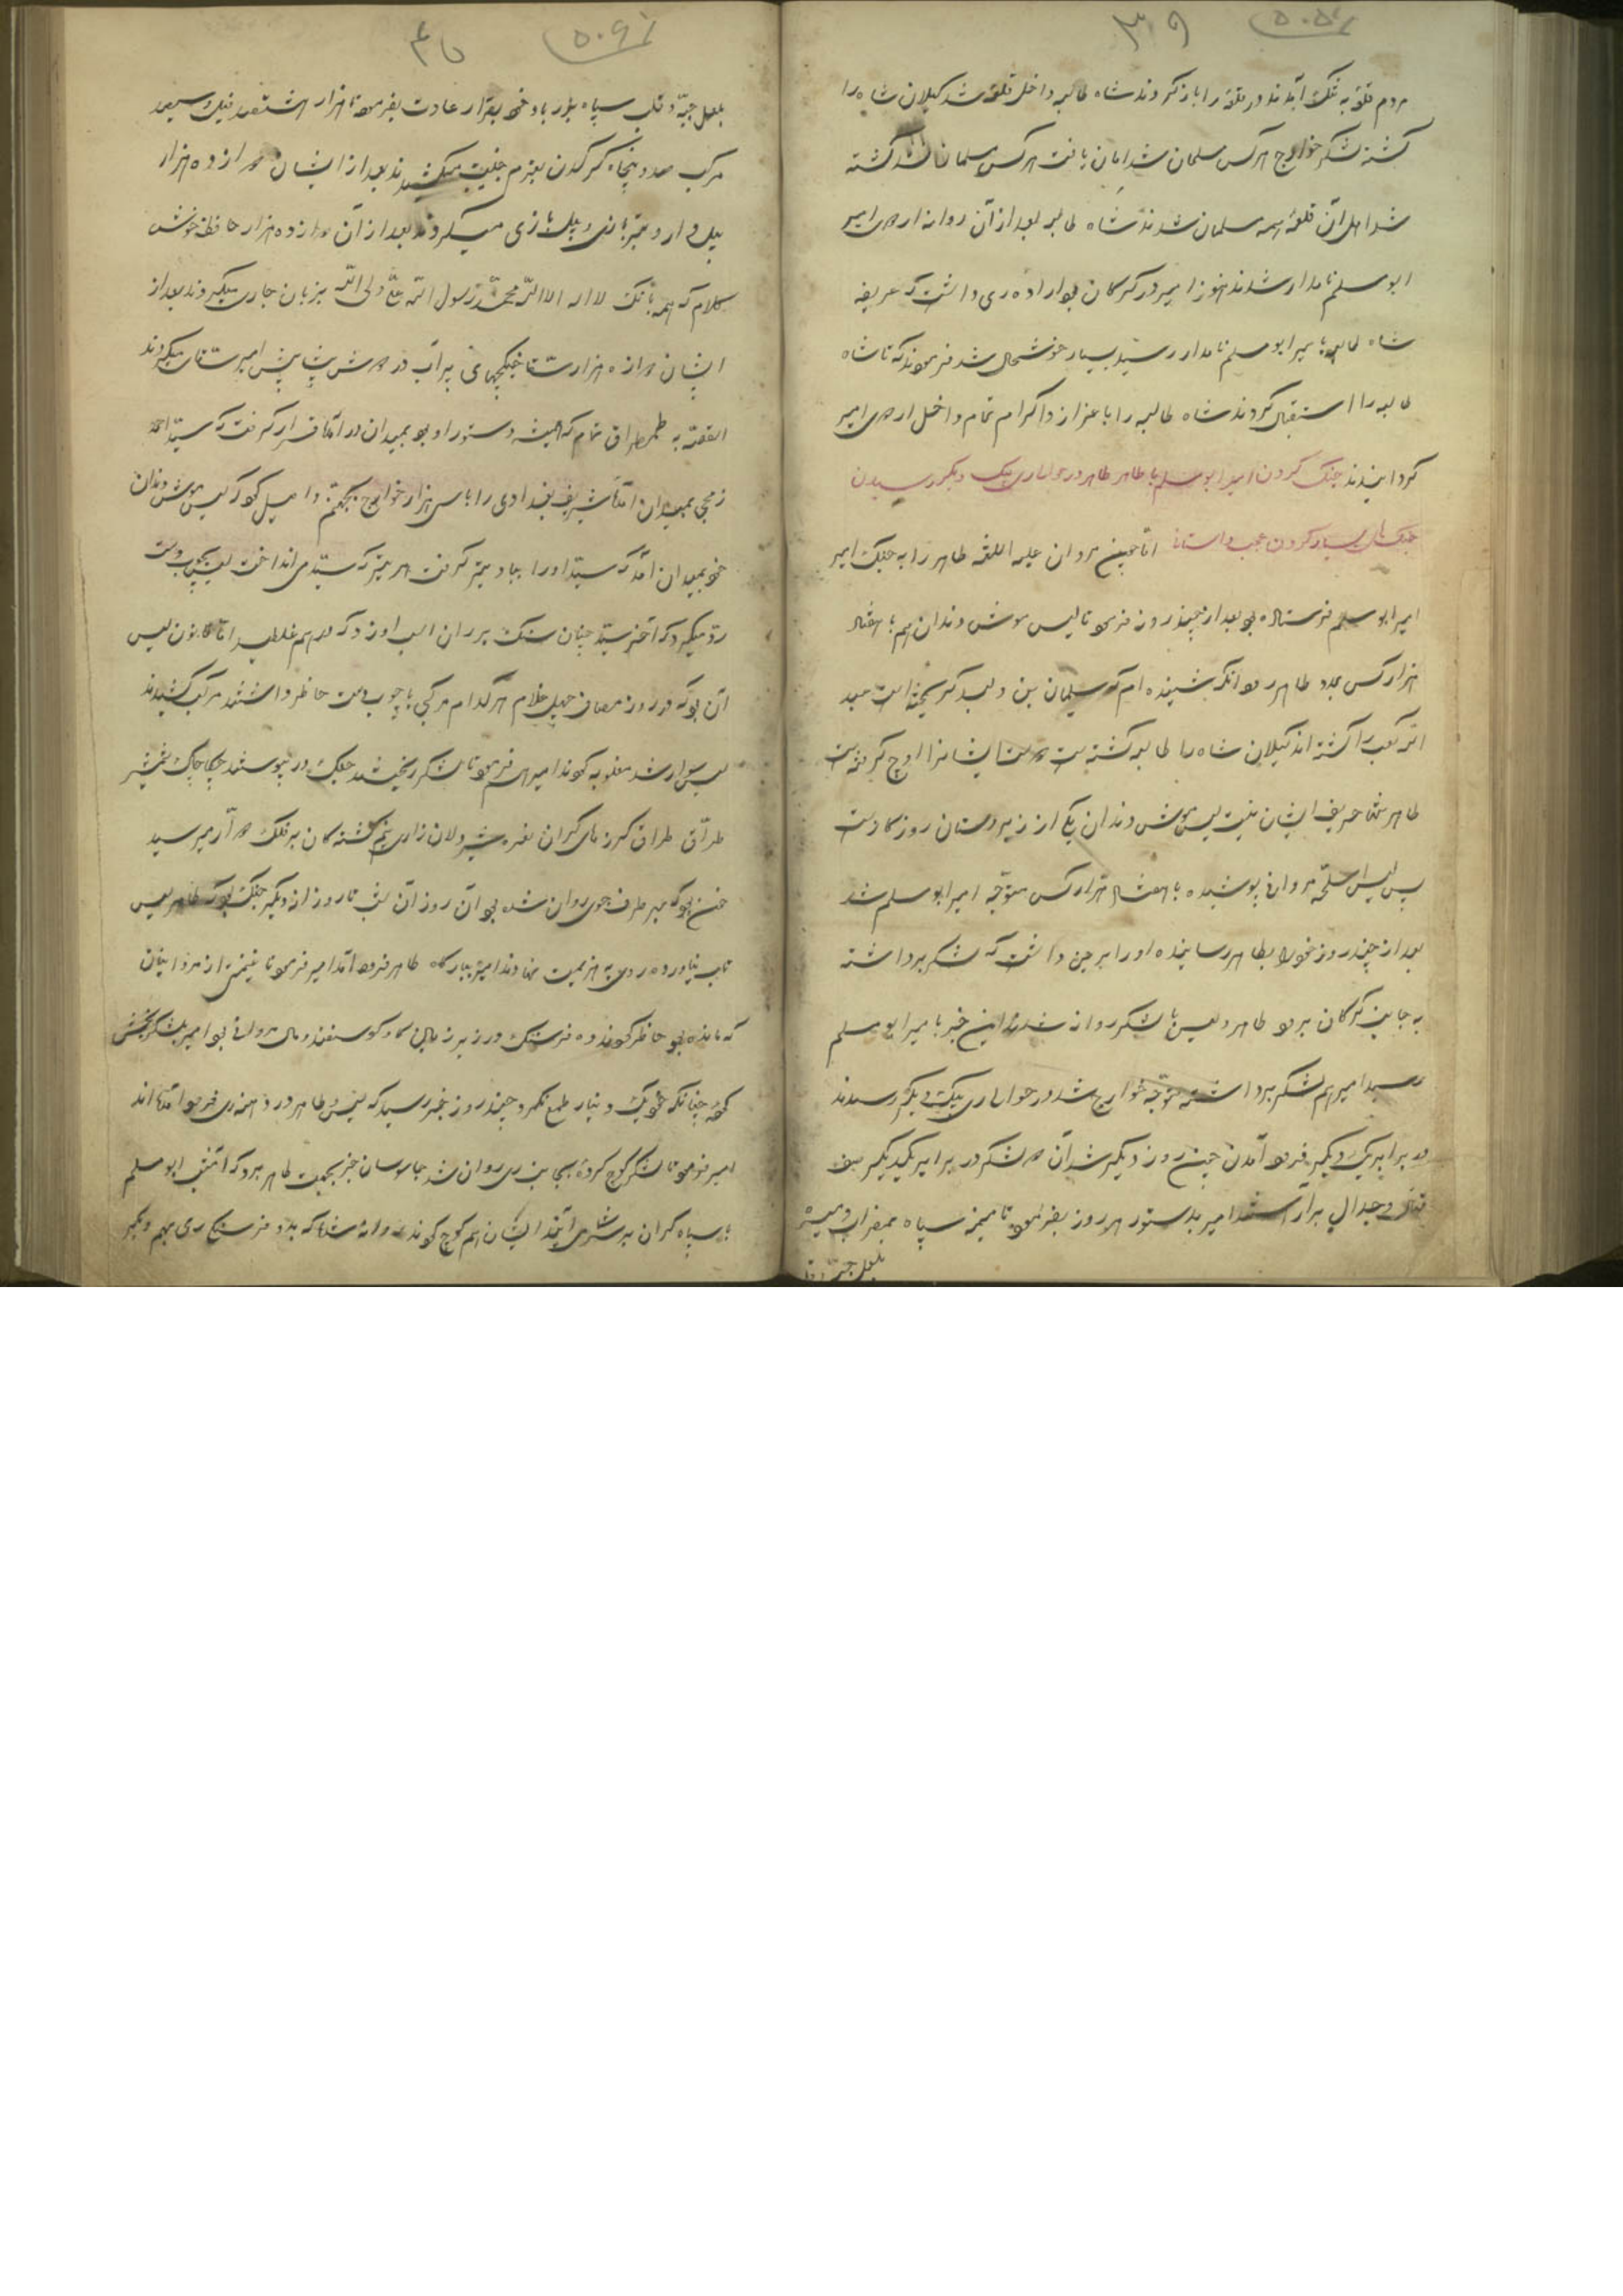 ۳۹
مردم قلعه به تنگ آمدند در قلعه را باز کردند شاه طالبه داخل قلعه شد کیلان شاه را
کشته لشکر خوارج هر کس مسلمان شد امان یافت هر کس مسلمان نشد کشته
شد اهل آن قلعه همه مسلمان شدند شاه طالبه بعد از آن روانه اردوی امیر
ابو مسلم نامدار شدند هنوز امیر در کرکان بود اراده ری داشت که عریضه
شاه طالبه بامیر ابو مسلم نامدار رسید بسیار خوشحال شد فرمودند که تا شاه
طالبه را استقبال کردند شاه طالبه را با عزاز و اکرام تمام داخل اردوی امیر
کردانیدند جنک کردن امیر ابو مسلم با طاهر طاهر در حوالی یک دیکر رسیدن
جنک های بسیار کردن عجب داستان اما چنین مروان علیه اللعنه طاهر را به جنک امیر
امیر ابو مسلم فرستاده بود بعد از چند روز فرمود تا لیس موش دندان هم با هفتاد
هزار کس بمدد طاهر رود آنکه شنیده ام که سلیمان بن ولید کریخته است سعید
کشته اند کیلان شاه را طالبه کشته است
طاهر حریف ایشان نیست لیس موش دندان یکی از زبردستان روزکار است
پس لیس اسلحه مروانی پوشیده با هفتاد هزار کس متوجه امیر ابو مسلم شد
بعد از چند روز خود را بطاهر رسانیده او را بر این داشت که لشکر برداشته
به جانب کرکان برود طاهر و لیس با لشکر روانه شدند این خبر بامیر ابو مسلم
رسید امیر هم لشکر برداشته متوجه خوارج شد در حوالی یک دیکر رسیدند
در برابر یک دیکر فرود آمدند چون روز دیکر شد آن دو لشکر در برابر یکدیکر صف
قتال و جدال برآراستند امیر بدستور هر روز بفرمود تا میمنه سپاه بمضراب و میسره
۴۰
سپاه بیار باد خود بقرار عادت بفرمود تا هزار هشتصد فیل و سیصد
مرکب صد و پنجاه کرکدن بعزم جنیبت میکشیدند بعد از ایشان دوازده هزار
بعد از آن دوازده هزار حافظ خوش
کلام که همه بانک لا اله الا الله محمد رسول الله علی ولی الله بزبان جاری میکردند بعد از
ایشان دوازده هزار سقا پر آب در دوش پیشاپیش امیر سقائی میکردند
القصه به طمطراق تمام که همیشه دستور او بود بمیدان در آمد قرار کرفت که سید احمد
زمجی بمیدان آمد شریف بغدادی را با سی هزار خوارج بجهنم واصل کرد که لیس موش دندان
خود بمیدان آمد که سید او را بباد تیر کرفت هر تیر که سید می انداخت لیس بچوب دست
رد میکرد که آخر سید چنان سنک بر ران اسب او زد که درهم غلطید اما قانون لیس
آن بود که در روز مصاف چهل غلام هر کدام مرکبی با چوب دست حاضر داشتند مرکب کشیدند
لیس سوار شد امیر هم فرمود تا لشکر ریختند جنک در پیوستند چکاچاک شمشیر
طراق طراق کرزهای کران نعره شیردلان زاری کشته کان بر فلک دوار میرسید
خون بود که بهر طرف جوی روان شده بود آن روز آن شب تا روز از دیکر جنک بود که طاهر لیس
تاب نیاورده روی به هزیمت نهادند امیر ببارکاه طاهر فرود آمد امیر فرمود تا غنیمتی از مروانیان
که مانده بود حاضر کردند ده فرسنک در زیر مال کاو کوسفند و مال مروانی بود امیر بلشکر بخش
کرد چنانکه خود یک دینار طمع نکرد چند روز خبر رسید که لیس و طاهر در فرود آمده اند
امیر فرمود تا لشکر کوچ کرده بجانب ری روان شد جاسوسان خبر بجهت طاهر برد که ابو مسلم
با سپاه کران بر سر شما می آیند ایشان هم کوچ کردند